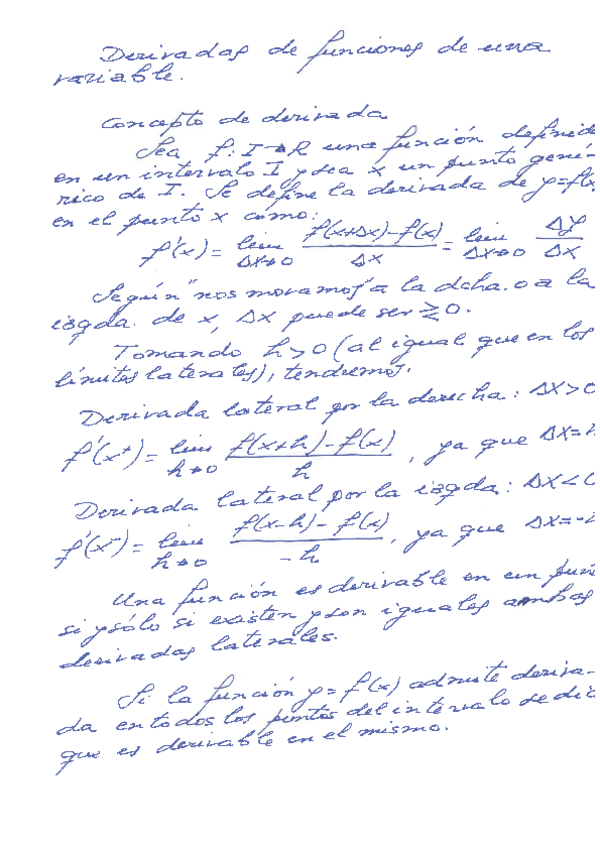 Derivadas de funciones de una
variable.
Concepto de derivada
Sea f: I→R una función definid
en un intervalo I y sea x un punto gené-
rico de I. Se define la derivada de y=f(x)
en el punto x como:
f'(x) = lim Δx→0 (f(x+Δx)-f(x))/Δx = lim Δx→0 Δy/Δx
Según "nos movamos" a la dcha. o a la
izqda. de x, Δx puede ser ≷0.
Tomando h>0 (al igual que en los
límites laterales), tendremos.
Derivada lateral por la derecha: Δx>0
f'(x⁺) = lim h→0 (f(x+h)-f(x))/h, ya que Δx=h
Derivada lateral por la izqda: Δx<0
f'(x⁻) = lim h→0 (f(x-h)-f(x))/-h, ya que Δx=-h
Una función es derivable en un pun
si y sólo si existen y son iguales ambas
derivadas laterales.
Si la función y=f(x) admite deriva-
da en todos los puntos del intervalo se dic
que es derivable en el mismo.